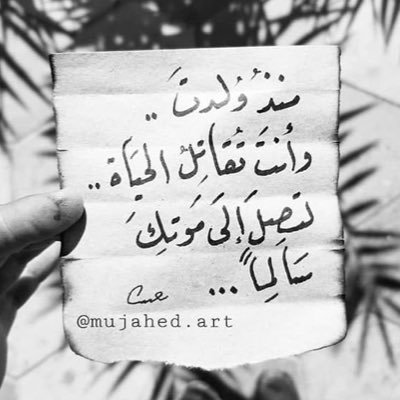 منذُ وُلدتَ ..
وأنتَ تُقاتِلُ الحيَاة ..
لتصِلَ إلىَ مَوتِكَ
سَالِماً ...
@mujahed.art